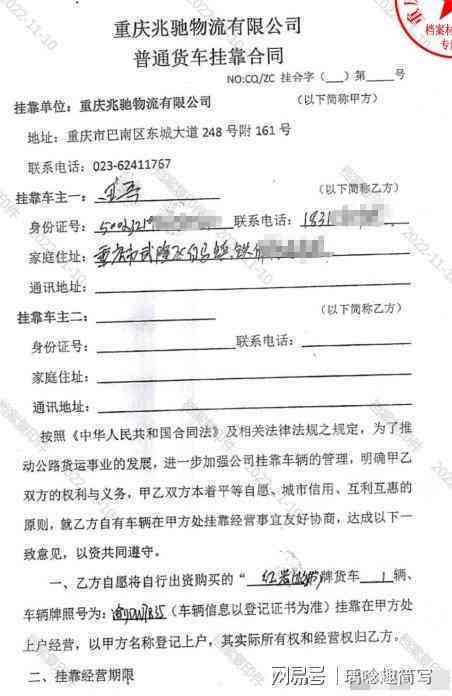 重庆兆驰物流有限公司
普通货车挂靠合同
NO:CQ/ZC 挂合字(___)第_____号
挂靠单位:重庆兆驰物流有限公司 (以下简称甲方)
地址:重庆市巴南区东城大道 248 号附 161 号
联系电话:023-62411767
挂靠车主一: (以下简称乙方)
身份证号:50023219 联系电话:1831
家庭住址:重庆市武隆区白马镇铁
通讯地址:
挂靠车主二: (以下简称乙方)
身份证号: 联系电话:
家庭住址:
通讯地址:
按照《中华人民共和国合同法》及相关法律法规之规定,为了推
动公路货运事业的发展,进一步加强公司挂靠车辆的管理,明确甲乙
双方的权利与义务,甲乙双方本着平等自愿、城市信用、互利互惠的
原则,就乙方自有车辆在甲方处挂靠经营事宜友好协商,达成以下一
致意见,以资共同遵守。
一、乙方自愿将自行出资购买的“红岩 牌货车 1 辆、
车辆牌照号为:渝 (车辆信息以登记证书为准)挂靠在甲方处
上户经营,以甲方名称登记上户,其实际所有权和经营权归乙方。
二、挂靠经营期限
档案材
专
档案复印件
2022-11-10
网易号 | 瑀唸趣简写